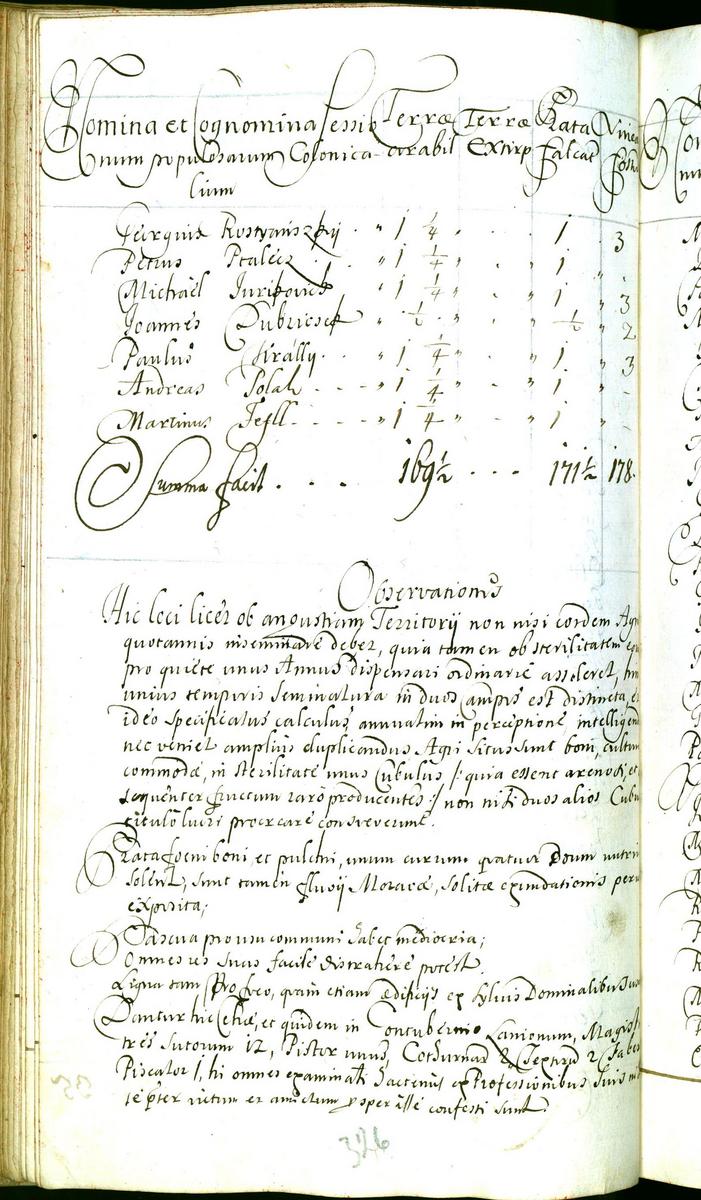 Nomina et Cognomina Sessio Terræ Terræ Prata Vinea
num populosarum Colonica arabil Extirp falcat
lium
Georgius Rostyanszkij . " 1 1/4 " . . 1 . 3
Petrus . " 1 1/4 " . " 1 " .
Michael Jurikovich " 1 1/4 " . " 1 " 3
Joannes " . 1/2 . " . " 1/2 " 2
Paulus Kirally . . " 1 1/4 " . " 1 " 3
Andreas Polak . - - - " 1 1/4 " 1 " -
Martinus . . . - " 1 1/4 " . " 1 " -
Summa facit . . . . 169 1/2 . . . 171 1/2 178.
Observationes
Hic loci licet ob angustiam Territorij non nisi eordem
quotannis inseminare debet, quia tamen ob sterilitatem
pro quiete unus Annus dispensari ordinarie assoleret,
unius temporis seminatura in duos campis est distincta,
ideo specificatus calculus annuatim in perceptione
nec veniet amplius duplicandus Agri situs sunt boni,
commodæ, in sterilitate unus Cubulus /: quia essent arenosi, et
sequenter fructum raro producentes :/ non nisi duos alios
lucri procreare consveverunt.
Prata foeni boni, et pulchri, unum currum quatuor Boum
solent, sunt tamen fluvij Moravæ, solitæ exundationis
exposita;
Pascua pro usu communi habet mediocria;
Omnes res suas facile distrahere potest.
Ligna tam pro foco, quam etiam ædificijs ex sylvis Dominalibus
Dantur hic Cehæ, et quidem in Contubernio Lanionum,
tres sutorum 12, Pistor unus, 2
Piscator 1, hi omnes examinati hactenus ex Professionibus suis
præter victum et amictum prosperasse confessi sunt.
326